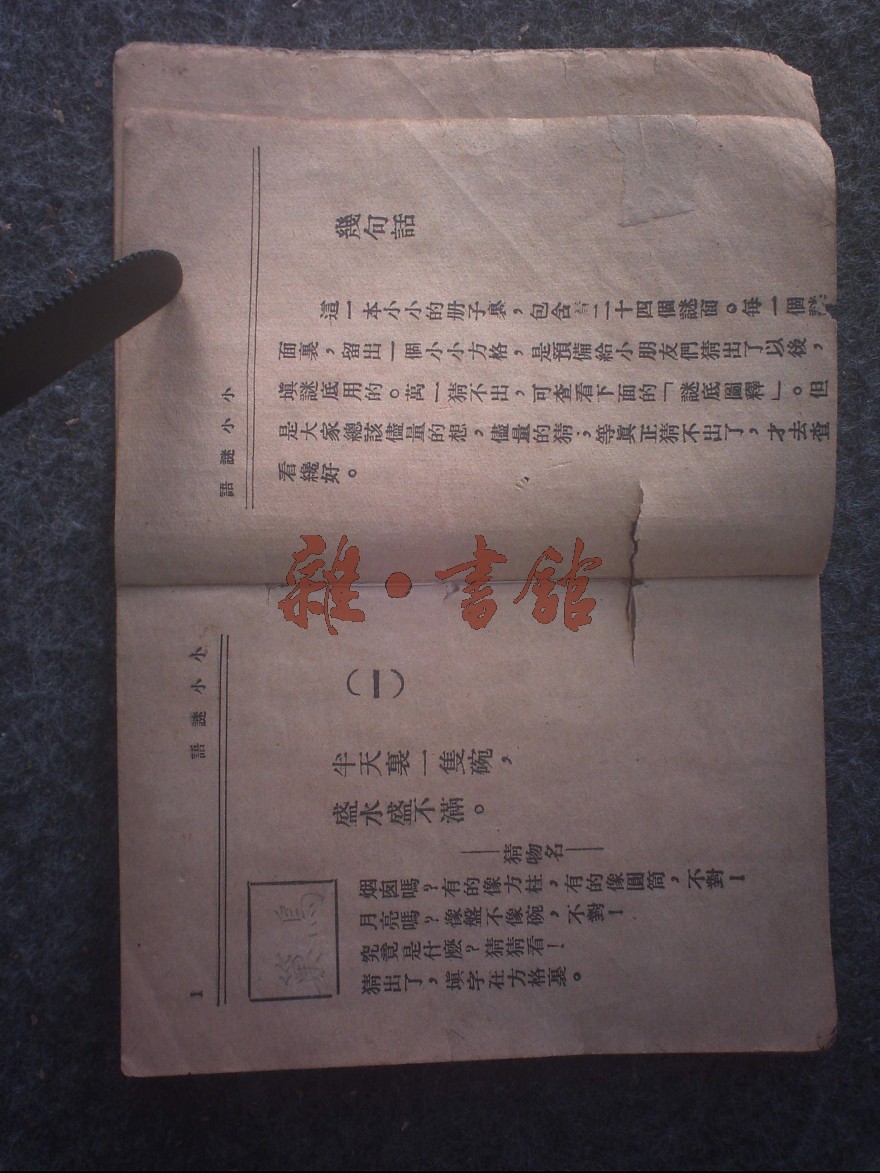 小小謎語
幾句話
這一本小小的册子裏，包含着二十四個謎面。每一個謎
面裏，留出一個小小方格，是預備給小朋友們猜出了以後，
塡謎底用的。萬一猜不出，可查看下面的「謎底圖釋」。但
是大家總該儘量的想，儘量的猜；等眞正猜不出了，才去查
看纔好。
雜·書館
小小謎語
(一)
半天裏一隻碗，
盛水盛不滿。
猜物名
烟囪嗎？有的像方柱，有的像圓筒，不對！
月亮嗎？像盤不像碗，不對！
究竟是什麽？猜猜看！
猜出了，塡字在方格裏。
鳥巢
1